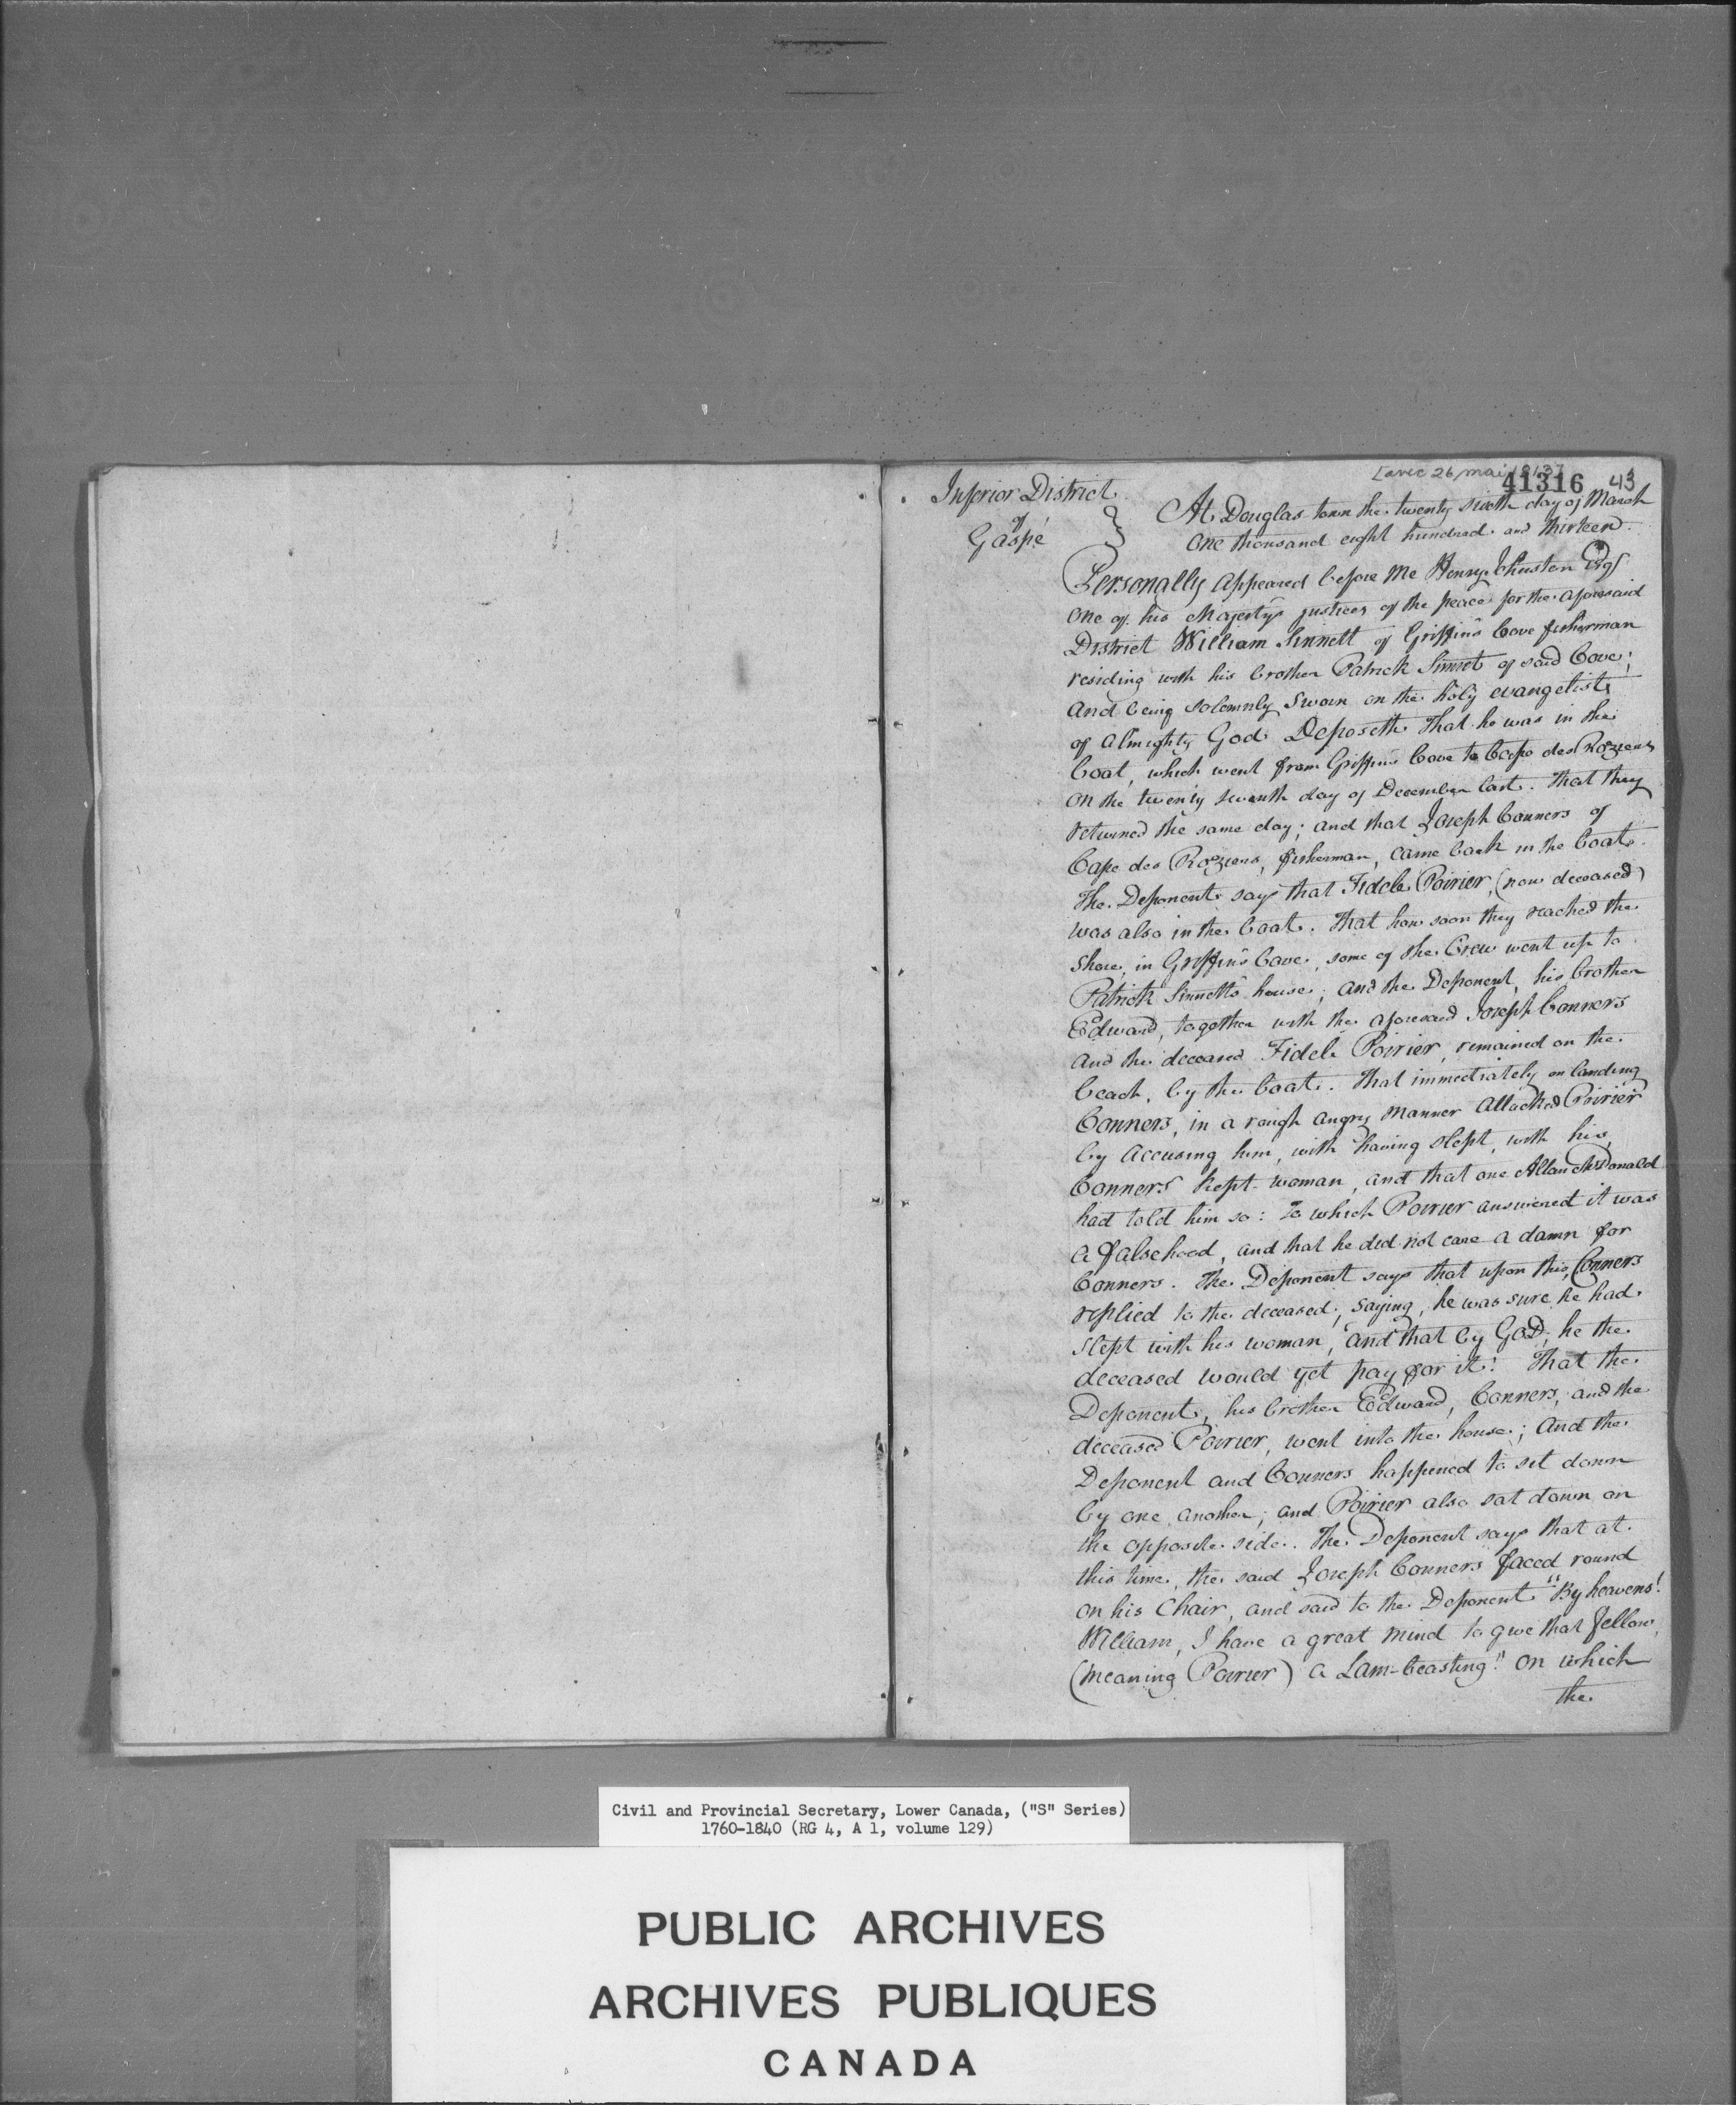 [avec 26 mai 1813]
41316 43
Inferior District
of
Gaspé
At Douglas town the twenty sixth day of March
One thousand eight hundred and thirteen.
Personally appeared before me Henry Johnston Esqr
One of his Majesty's justices of the peace for the aforesaid
District William Sinnett of Griffin's Cove fisherman
residing with his brother Patrick Sinnot of said Cove;
And being solemnly sworn on the holy evangelists
of Almighty God Deposeth That he was in the
boat, which went from Griffin's Cove to Cape des Roziers
On the twenty seventh day of December last. That they
returned the same day; and that Joseph Conners of
Cape des Roziers, fisherman, came back in the boat.
The Deponent says that Fidele Poirier, (now deceased)
was also in the boat. That how soon they reached the
Shore, in Griffin's Cove, some of the Crew went up to
Patrick Sinnett's house; and the Deponent, his brother
Edward, together with the aforesaid Joseph Conners
And the deceased Fidele Poirier, remained on the
beach, by the boat. That immediately on landing
Conners, in a rough angry manner attacked Poirier
by accusing him, with having slept, with his,
Conners kept-woman, and that one Allan McDonald
had told him so: To which Poirier answered it was
a falsehood, and that he did not care a damn for
Conners. The Deponent says that upon this, Conners
replied to the deceased, saying, he was sure he had
slept with his woman, "and that by GOD, he the
deceased would yet pay for it! That the
Deponent, his brother Edward, Conners, and the
deceased Poirier, went into the house; And the
Deponent and Conners happened to sit down
by one another; and Poirier also sat down on
the opposite side. The Deponent says that at
this time, the said Joseph Conners faced round
on his Chair, and said to the Deponent "By heavens!
William, I have a great mind to give that fellow,
(meaning Poirier) a Lam-beasting." On which
the
Civil and Provincial Secretary, Lower Canada, ("S" Series)
1760-1840 (RG 4, A 1, volume 129)
PUBLIC ARCHIVES
ARCHIVES PUBLIQUES
CANADA